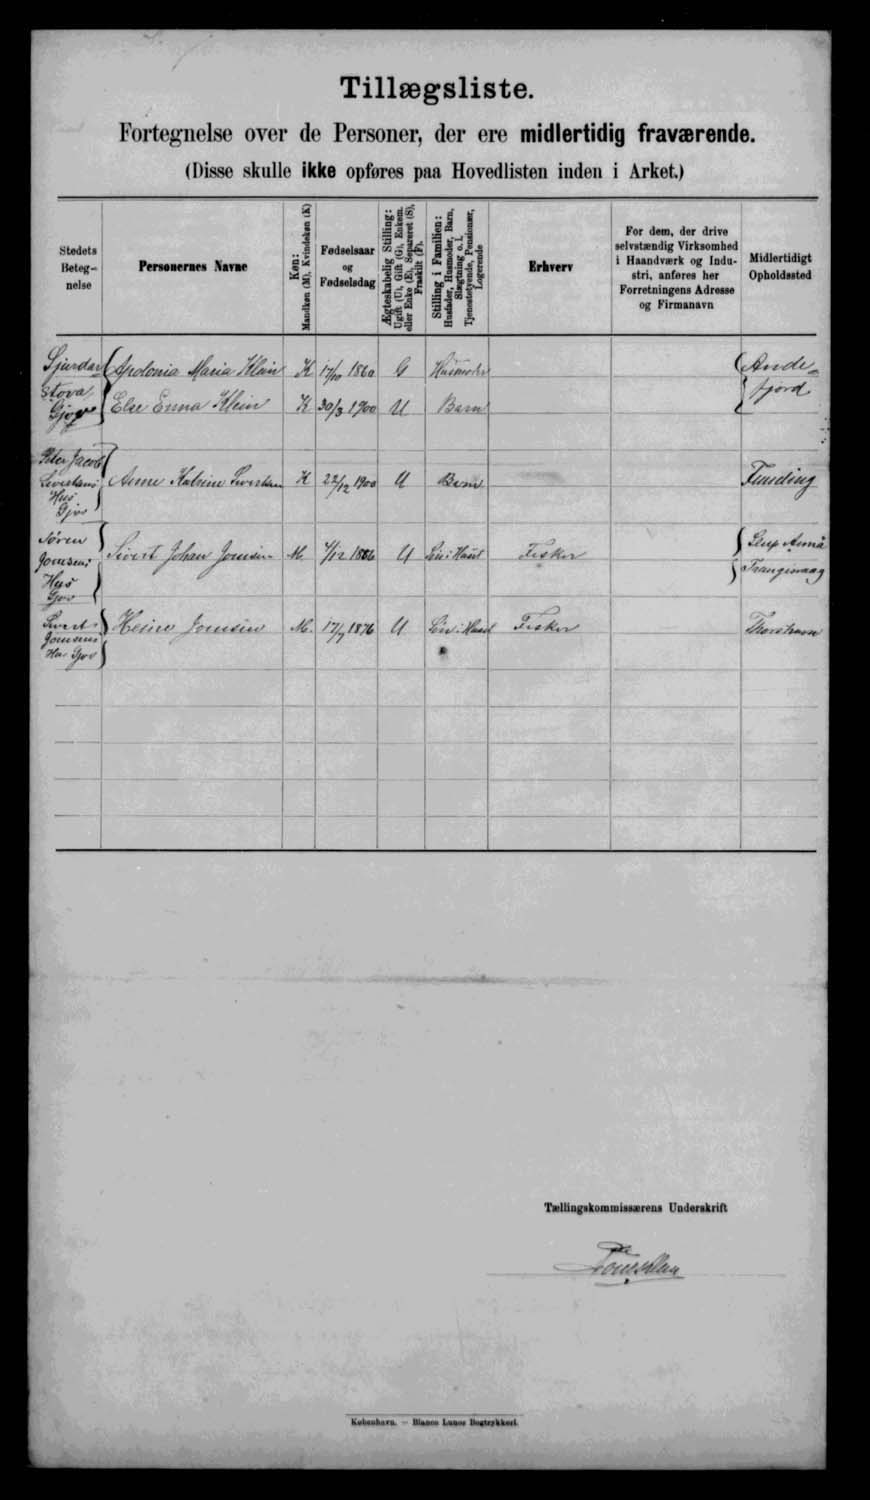 Tillægsliste.
Fortegnelse over de Personer, der ere midlertidig fraværende.
(Disse skulle ikke opføres paa Hovedlisten inden i Arket.)
Stedets Beteg-nelse
Personernes Navne
Køn: Mandkøn (M), Kvindekøn (K)
Fødselsaar og Fødselsdag
Ægteskabelig Stilling: Ugift (U), Gift (G), Enkem. eller Enke (E), Separeret (S), Fraskilt (F).
Stilling i Familien: Husfader, Husmoder, Barn, Slægtning o. l. Tjenestetyende, Pensionær, Logerende
Erhverv
For dem, der drive selvstændig Virksomhed i Haandværk og Indu-stri, anføres her Forretningens Adresse og Firmanavn
Midlertidigt Opholdssted
Sjurdar Apolonia Maria Klein K 17/10 1860 G Husmoder Ande=
Stova, Gjov Else Enna Klein K 30/3 1900 U Barn fjord
Peter Jacob
Hus Gjov Anne Katrine K 22/12 1900 U Barn Funding
Søren
Jomsens Sivert Johan Jomsen M. U Søn i Huset Fisker
Hus Trangisvaag
Gjov
Sivert Heine Jomsen M. 17/7 1876 U Søn i Huset Fisker Thorshavn
Jomsens
Hus Gjov
Tællingskommissærens Underskrift
København. – Bianco Lunos Bogtrykkeri.